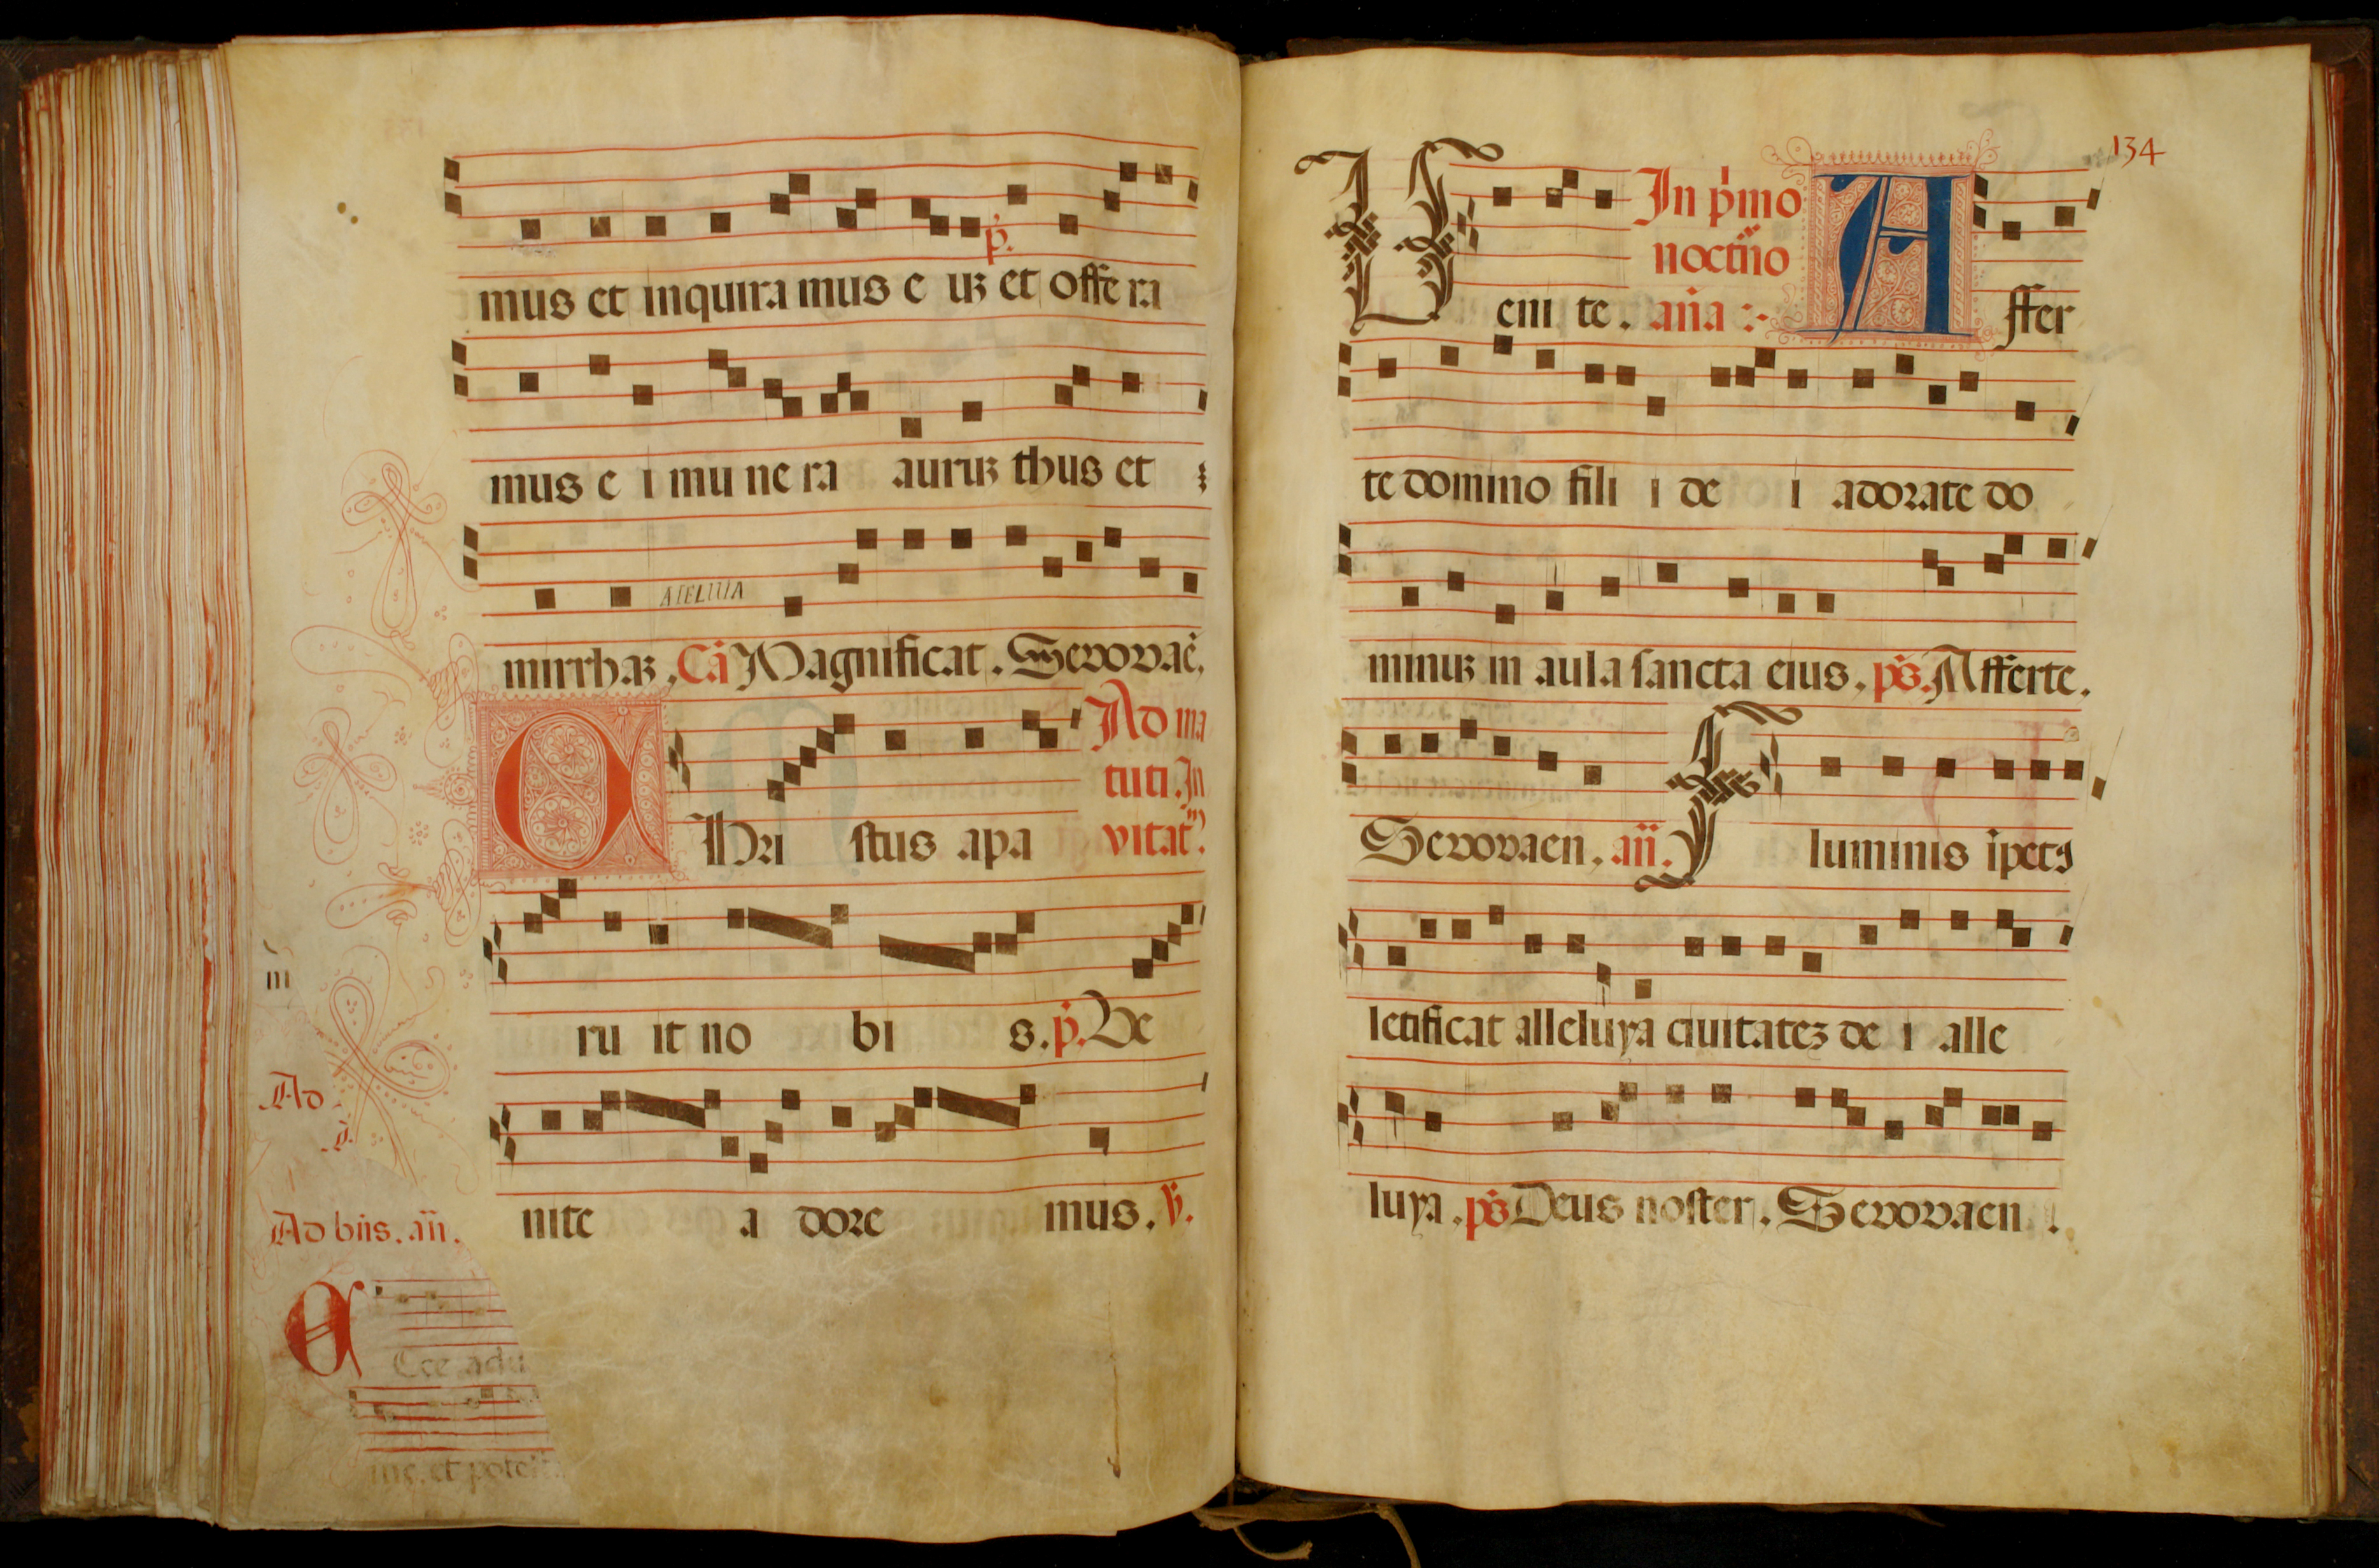 mus et inquira mus e uꝫ et offe ra
p̃.
mus e i mu ne ra auruꝫ thus et
ALELUIA
mirrhaꝫ. Cã Magnificat. Sevovae.
Ad ma
tuti. In
vitat.
C Hri stus apa
m
ru it no bi s. p̃. Ve
Ad
nite a dore mus. ṽ.
Ad bñs. añ.
E Cce adu
me. et potest
134
V eni te. In p̃mo
noctũo
aña A ffer
te domino fili i de i adorate do
minuꝫ in aula sancta eius. pṡ. Afferte.
Sevovaen. añ. F luminis ipetꝰ
letificat alleluya ciuitateꝫ de i alle
luya. pṡ Deus noster. Sevovaen.